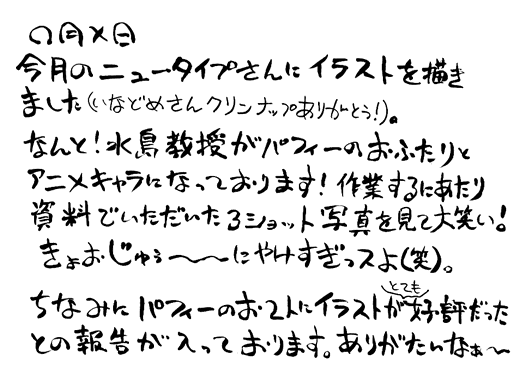 〇月×日
今月のニュータイプさんにイラストを描き
ました(いなどめさんクリンナップありがとう!)。
なんと!水島教授がパフィーのおふたりと
アニメキャラになっております!作業するにあたり
資料でいただいた3ショット写真を見て大笑い!
きょおじゅぅ〜〜にやけすぎっスよ(笑)。
ちなみにパフィーのお2人にイラストがとても好評だった
との報告が入っております。ありがたいなぁ〜